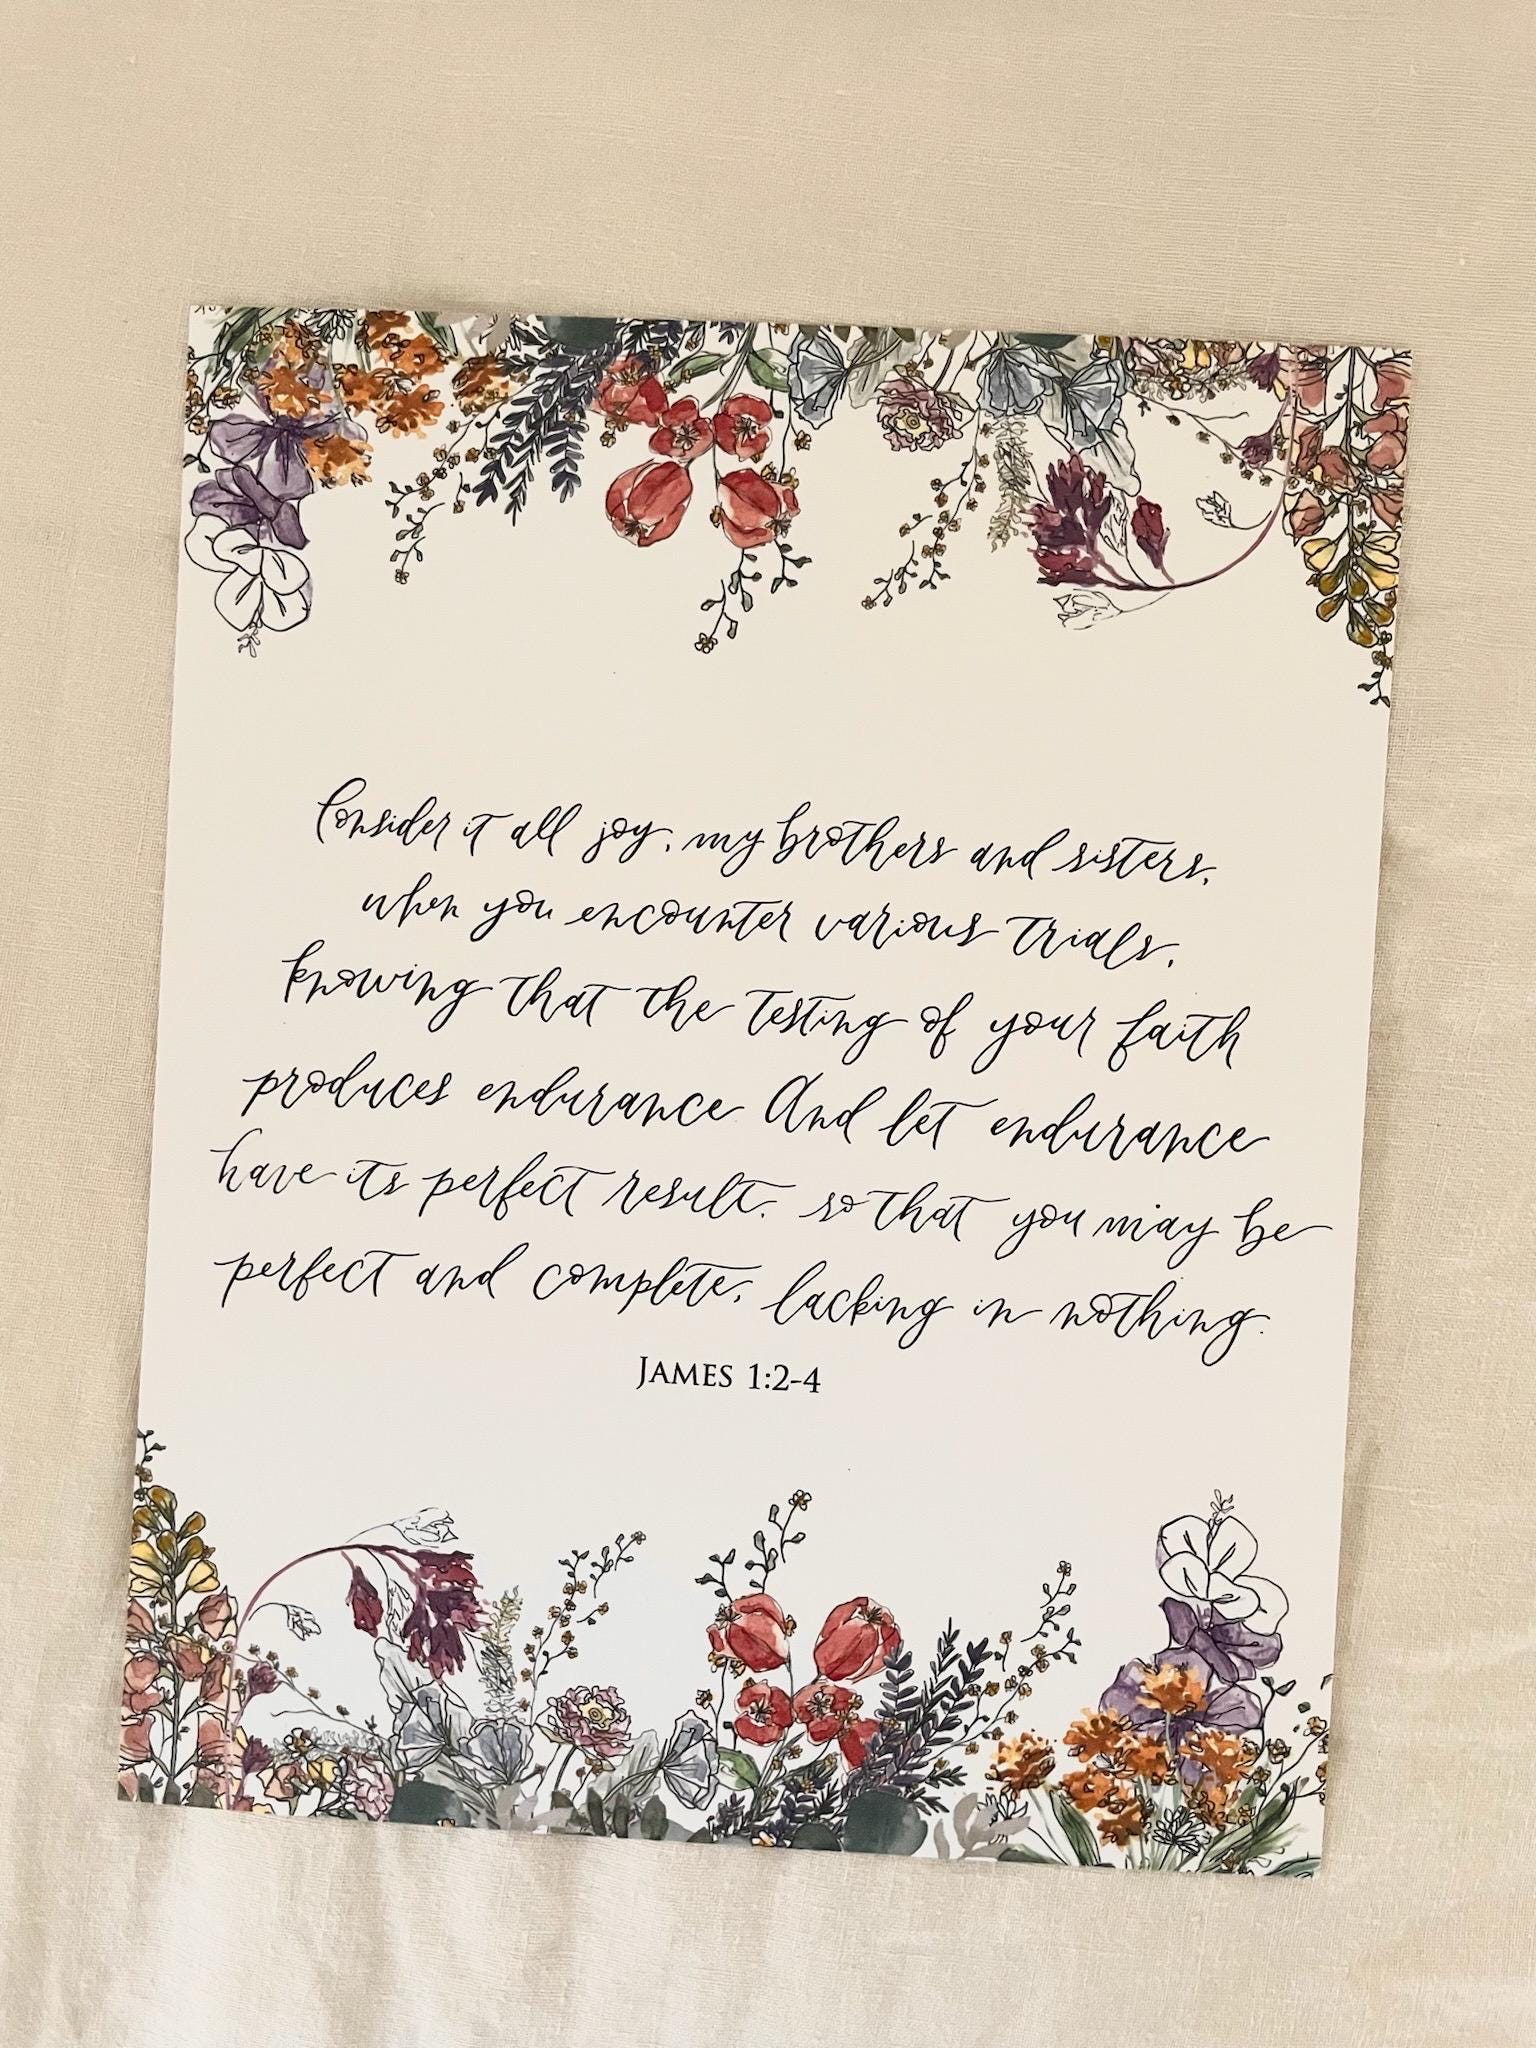 Consider it all joy, my brothers and sisters,
when you encounter various trials,
knowing that the testing of your faith
produces endurance And let endurance
have its perfect result, so that you may be
perfect and complete, lacking in nothing.
JAMES 1:2-4